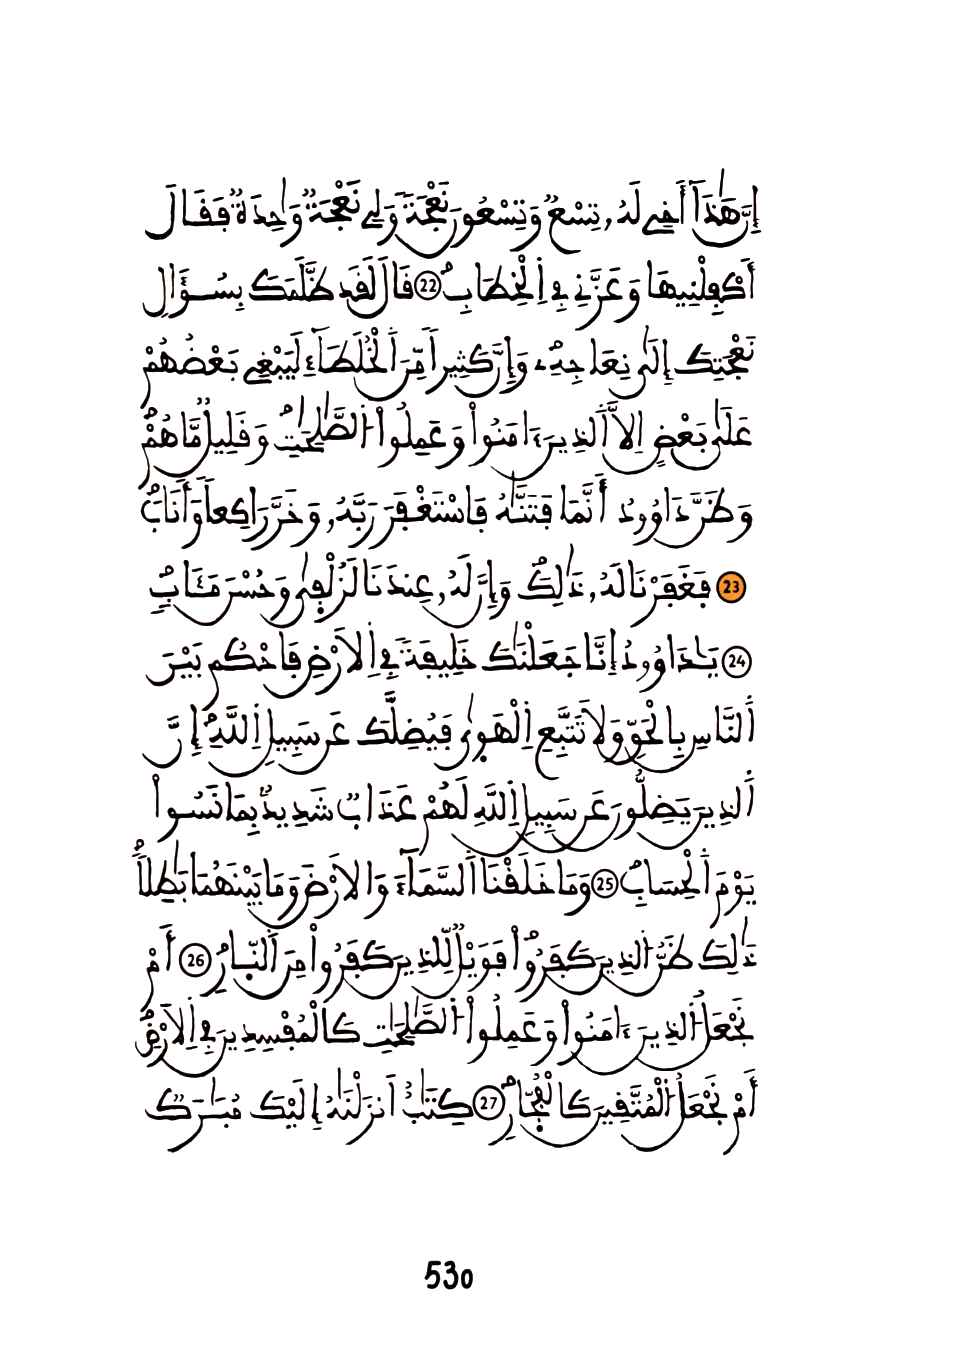 إِنَّ هَٰذَآ أَخِے لَهُۥ تِسْعٞ وَتِسْعُونَ نَعْجَةٗ وَلِے نَعْجَةٞ وَٰحِدَةٞ فَقَالَ
أَكْفِلْنِيهَا وَعَزَّنِے فِے اِ۬لْخِطَابِۖ 22 قَالَ لَقَد ظَّلَمَكَ بِسُؤَالِ
نَعْجَتِكَ إِلَىٰ نِعَاجِهِۦۖ وَإِنَّ كَثِيراٗ مِّنَ اَ۬لْخُلَطَآءِ لَيَبْغِے بَعْضُهُمْ
عَلَىٰ بَعْضٍ اِلَّا اَ۬لذِينَ ءَامَنُواْ وَعَمِلُواْ اُ۬لصَّٰلِحَٰتِۖ وَقَلِيلٞ مَّا هُمْۖ
وَظَنَّ دَاوُۥدُ أَنَّمَا فَتَنَّٰهُ فَاسْتَغْفَرَ رَبَّهُۥ وَخَرَّ رَاكِعاٗ وَأَنَابَۖ
23 فَغَفَرْنَا لَهُۥ ذَٰلِكَۖ وَإِنَّ لَهُۥ عِندَنَا لَزُلْفَىٰ وَحُسْنَ مَـَٔابٖۖ
24 يَٰدَاوُۥدُ إِنَّا جَعَلْنَٰكَ خَلِيفَةٗ فِے اِ۬لَارْضِ فَاحْكُم بَيْنَ
اَ۬لنَّاسِ بِالْحَقِّ وَلَا تَتَّبِعِ اِ۬لْهَوَىٰ فَيُضِلَّكَ عَن سَبِيلِ اِ۬للَّهِۖ إِنَّ
اَ۬لذِينَ يَضِلُّونَ عَن سَبِيلِ اِ۬للَّهِ لَهُمْ عَذَابٞ شَدِيدُۢ بِمَا نَسُواْ
يَوْمَ اَ۬لْحِسَابِۖ 25 وَمَا خَلَقْنَا اَ۬لسَّمَآءَ وَالَارْضَ وَمَا بَيْنَهُمَا بَٰطِلاٗۖ
ذَٰلِكَ ظَنُّ اُ۬لذِينَ كَفَرُواْۖ فَوَيْلٞ لِّلذِينَ كَفَرُواْ مِنَ اَ۬لنّ۪ارِۖ 26 أَمْ
نَجْعَلُ اُ۬لذِينَ ءَامَنُواْ وَعَمِلُواْ اُ۬لصَّٰلِحَٰتِ كَالْمُفْسِدِينَ فِے اِ۬لَارْضِۖ
أَمْ نَجْعَلُ اُ۬لْمُتَّقِينَ كَالْفُجّ۪ارِۖ 27 كِتَٰبٌ اَنزَلْنَٰهُ إِلَيْكَ مُبَٰرَكٞ
530